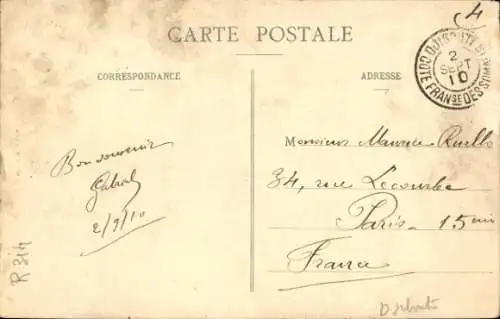 4
CARTE POSTALE
CORRESPONDANCE
ADRESSE
DJIBOUTI
2
SEPT
10
COTE FRANSE DES SOMALIS
Bon souvenir
2/9/10
Monsieur Maurice
34, rue Lecourbe
Paris - 15eme
France
R 314
Djibouti